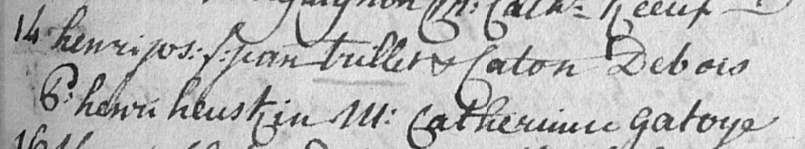 Cath:
14 henri jos: f: jean trillet & Caton Debois
P: henri heuskin M: Catherinne gatoye
16